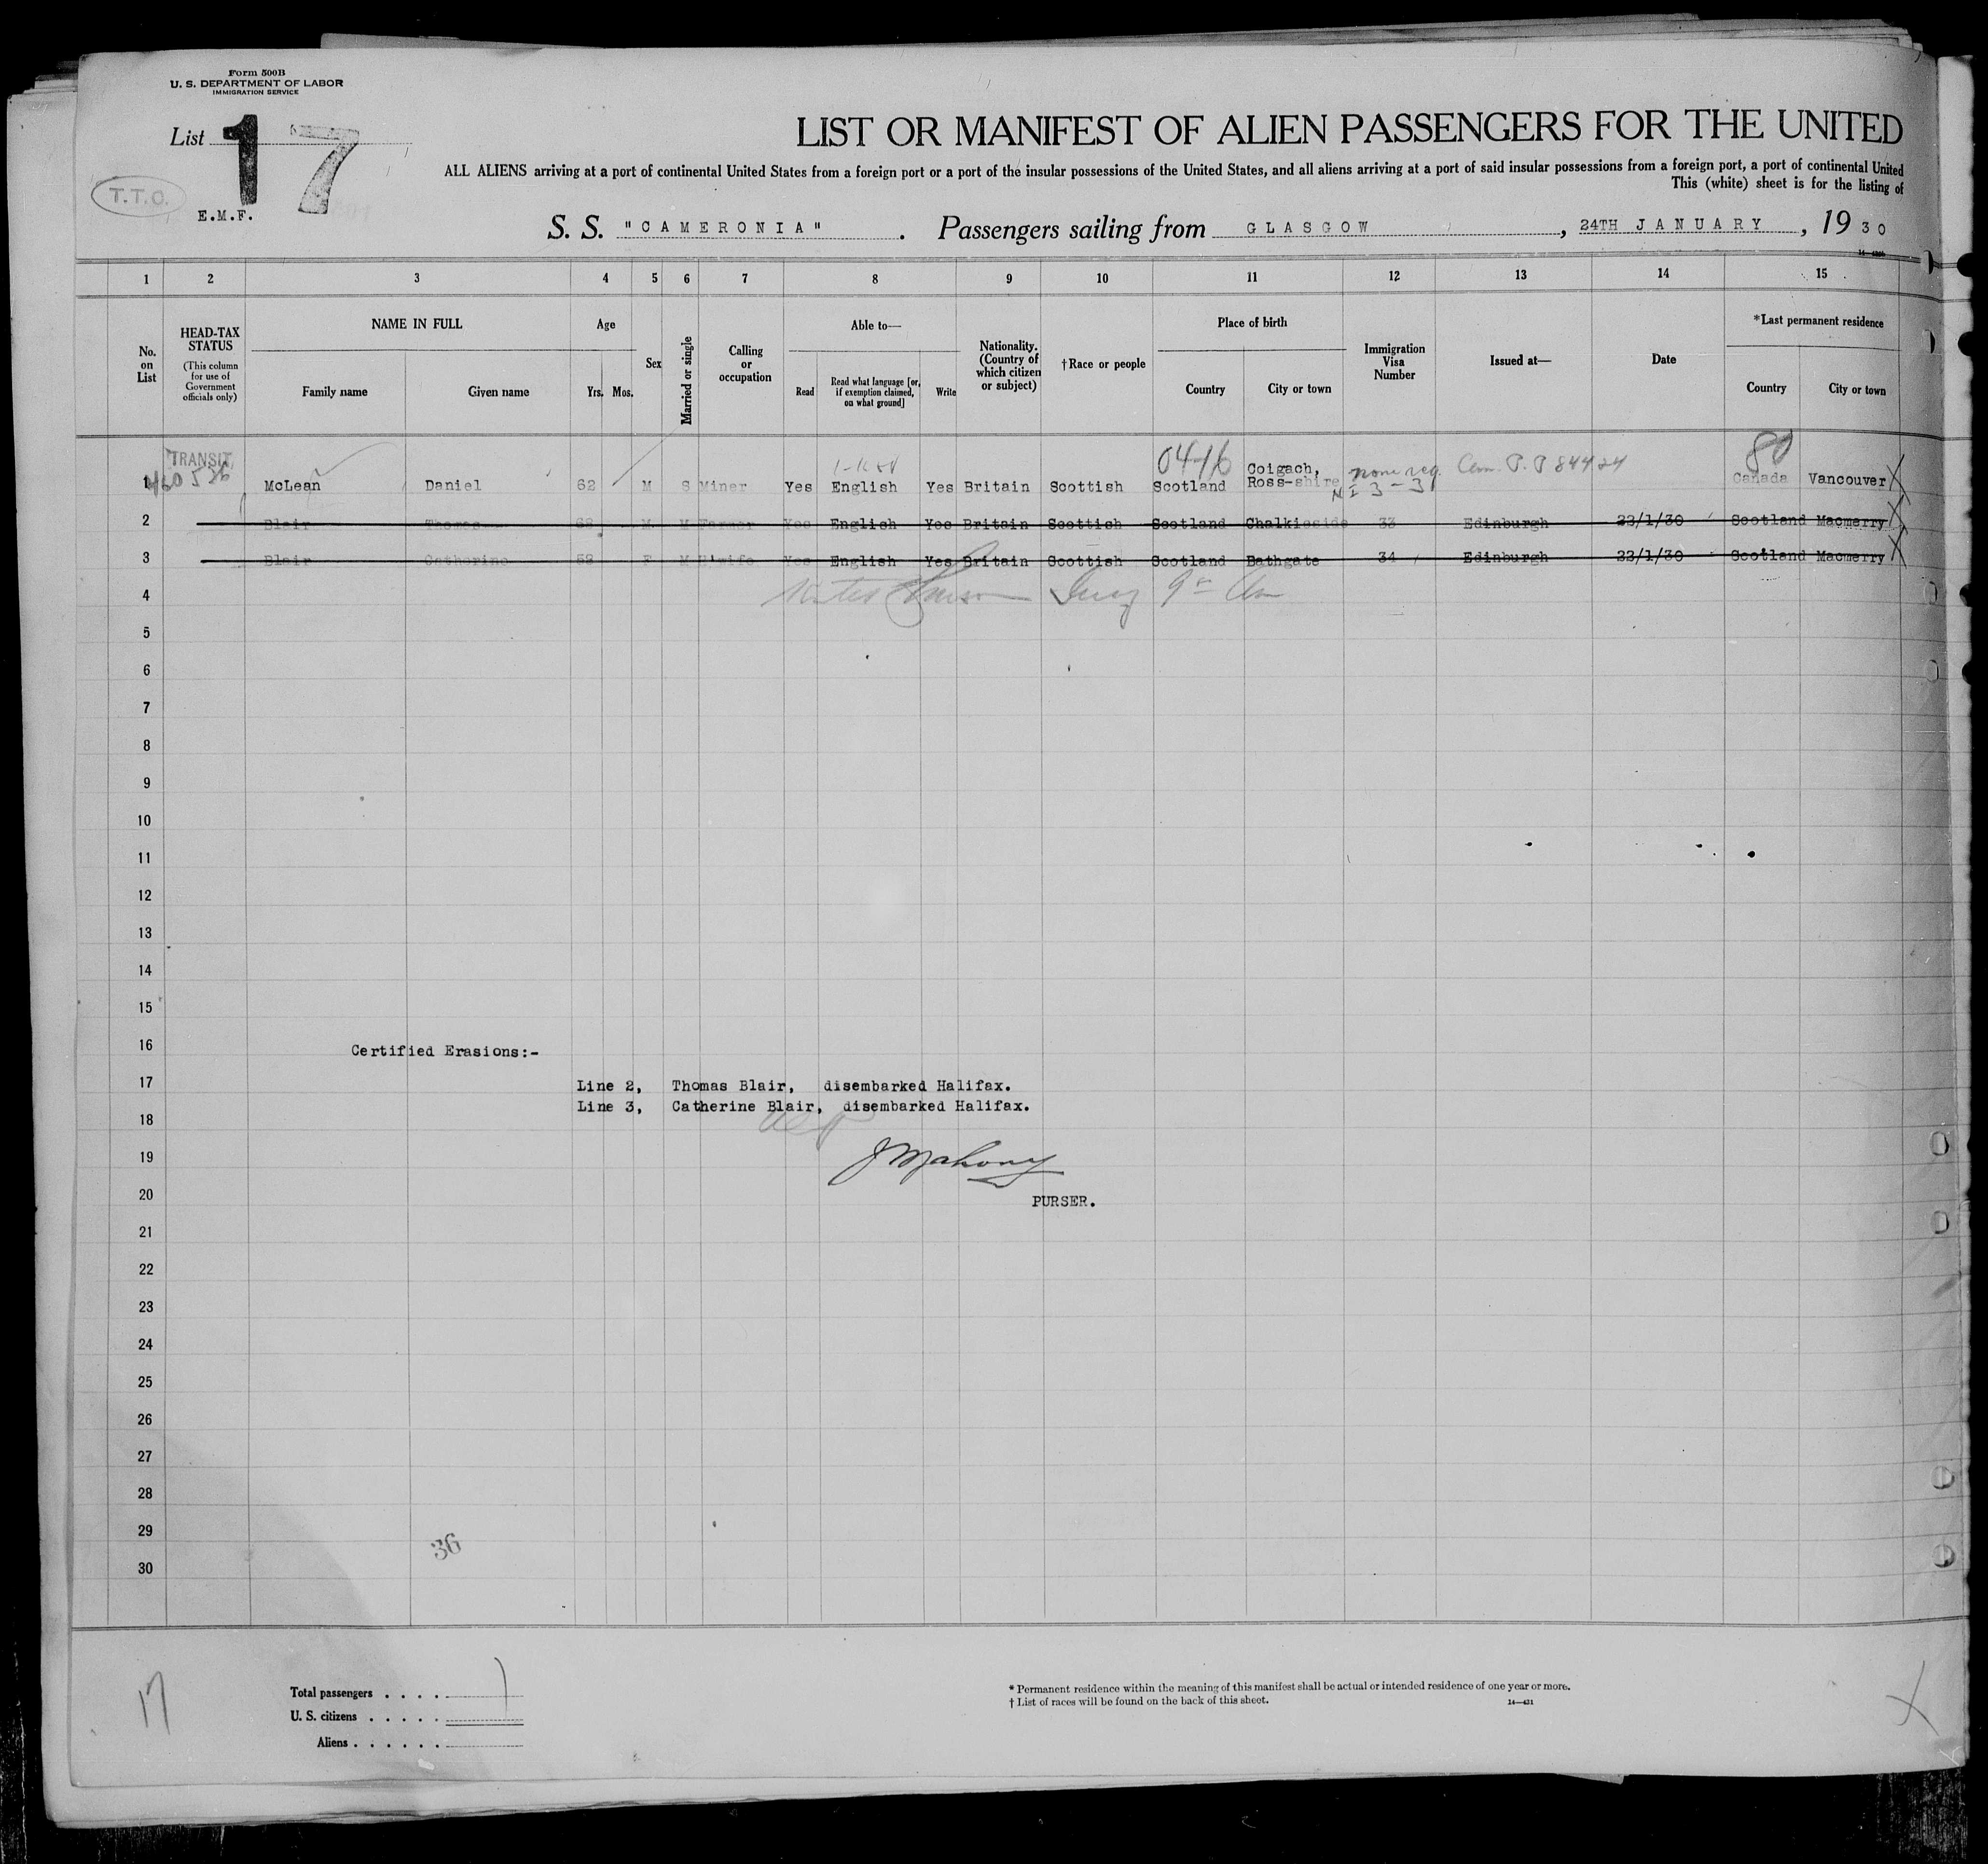 Form 500B
U. S. DEPARTMENT OF LABOR
IMMIGRATION SERVICE
List 17
T.T.O.
E.M.F.
LIST OR MANIFEST OF ALIEN PASSENGERS FOR THE UNITED
ALL ALIENS arriving at a port of continental United States from a foreign port or a port of the insular possessions of the United States, and all aliens arriving at a port of said insular possessions from a foreign port, a port of continental United
This (white) sheet is for the listing of
S. S. "CAMERONIA". Passengers sailing from GLASGOW, 24TH JANUARY, 1930
1 2 3 4 5 6 7 8 9 10 11 12 13 14 15
No. on List
HEAD-TAX STATUS
(This column for use of Government officials only)
NAME IN FULL
Family name Given name
Age
Yrs. Mos.
Sex
Married or single
Calling or occupation
Able to—
Read
Read what language [or, if exemption claimed, on what ground]
Write
Nationality. (Country of which citizen or subject)
†Race or people
Place of birth
Country City or town
Immigration Visa Number
Issued at—
Date
*Last permanent residence
Country City or town
TRANSIT
0416 80
1 McLean Daniel 62 M S Miner Yes English Yes Britain Scottish Scotland Coigach, Ross-shire none req. Can. P. P 84424 Canada Vancouver X
2 Blair Thomas M M Farmer Yes English Yes Britain Scottish Scotland Chalkieside 33 Edinburgh 22/1/30 Scotland Macmerry X
3 Blair Catherine F M H'wife Yes English Yes Britain Scottish Scotland Bathgate 34 Edinburgh 22/1/30 Scotland Macmerry X
4
5
6
7
8
9
10
11
12
13
14
15
16 Certified Erasions:-
17 Line 2, Thomas Blair, disembarked Halifax.
Line 3, Catherine Blair, disembarked Halifax.
18
19 J Mahony
20 PURSER.
21
22
23
24
25
26
27
28
29
36
30
17
Total passengers . . . . 1
U. S. citizens . . . . .
Aliens . . . . . .
* Permanent residence within the meaning of this manifest shall be actual or intended residence of one year or more.
† List of races will be found on the back of this sheet.
14—431
X